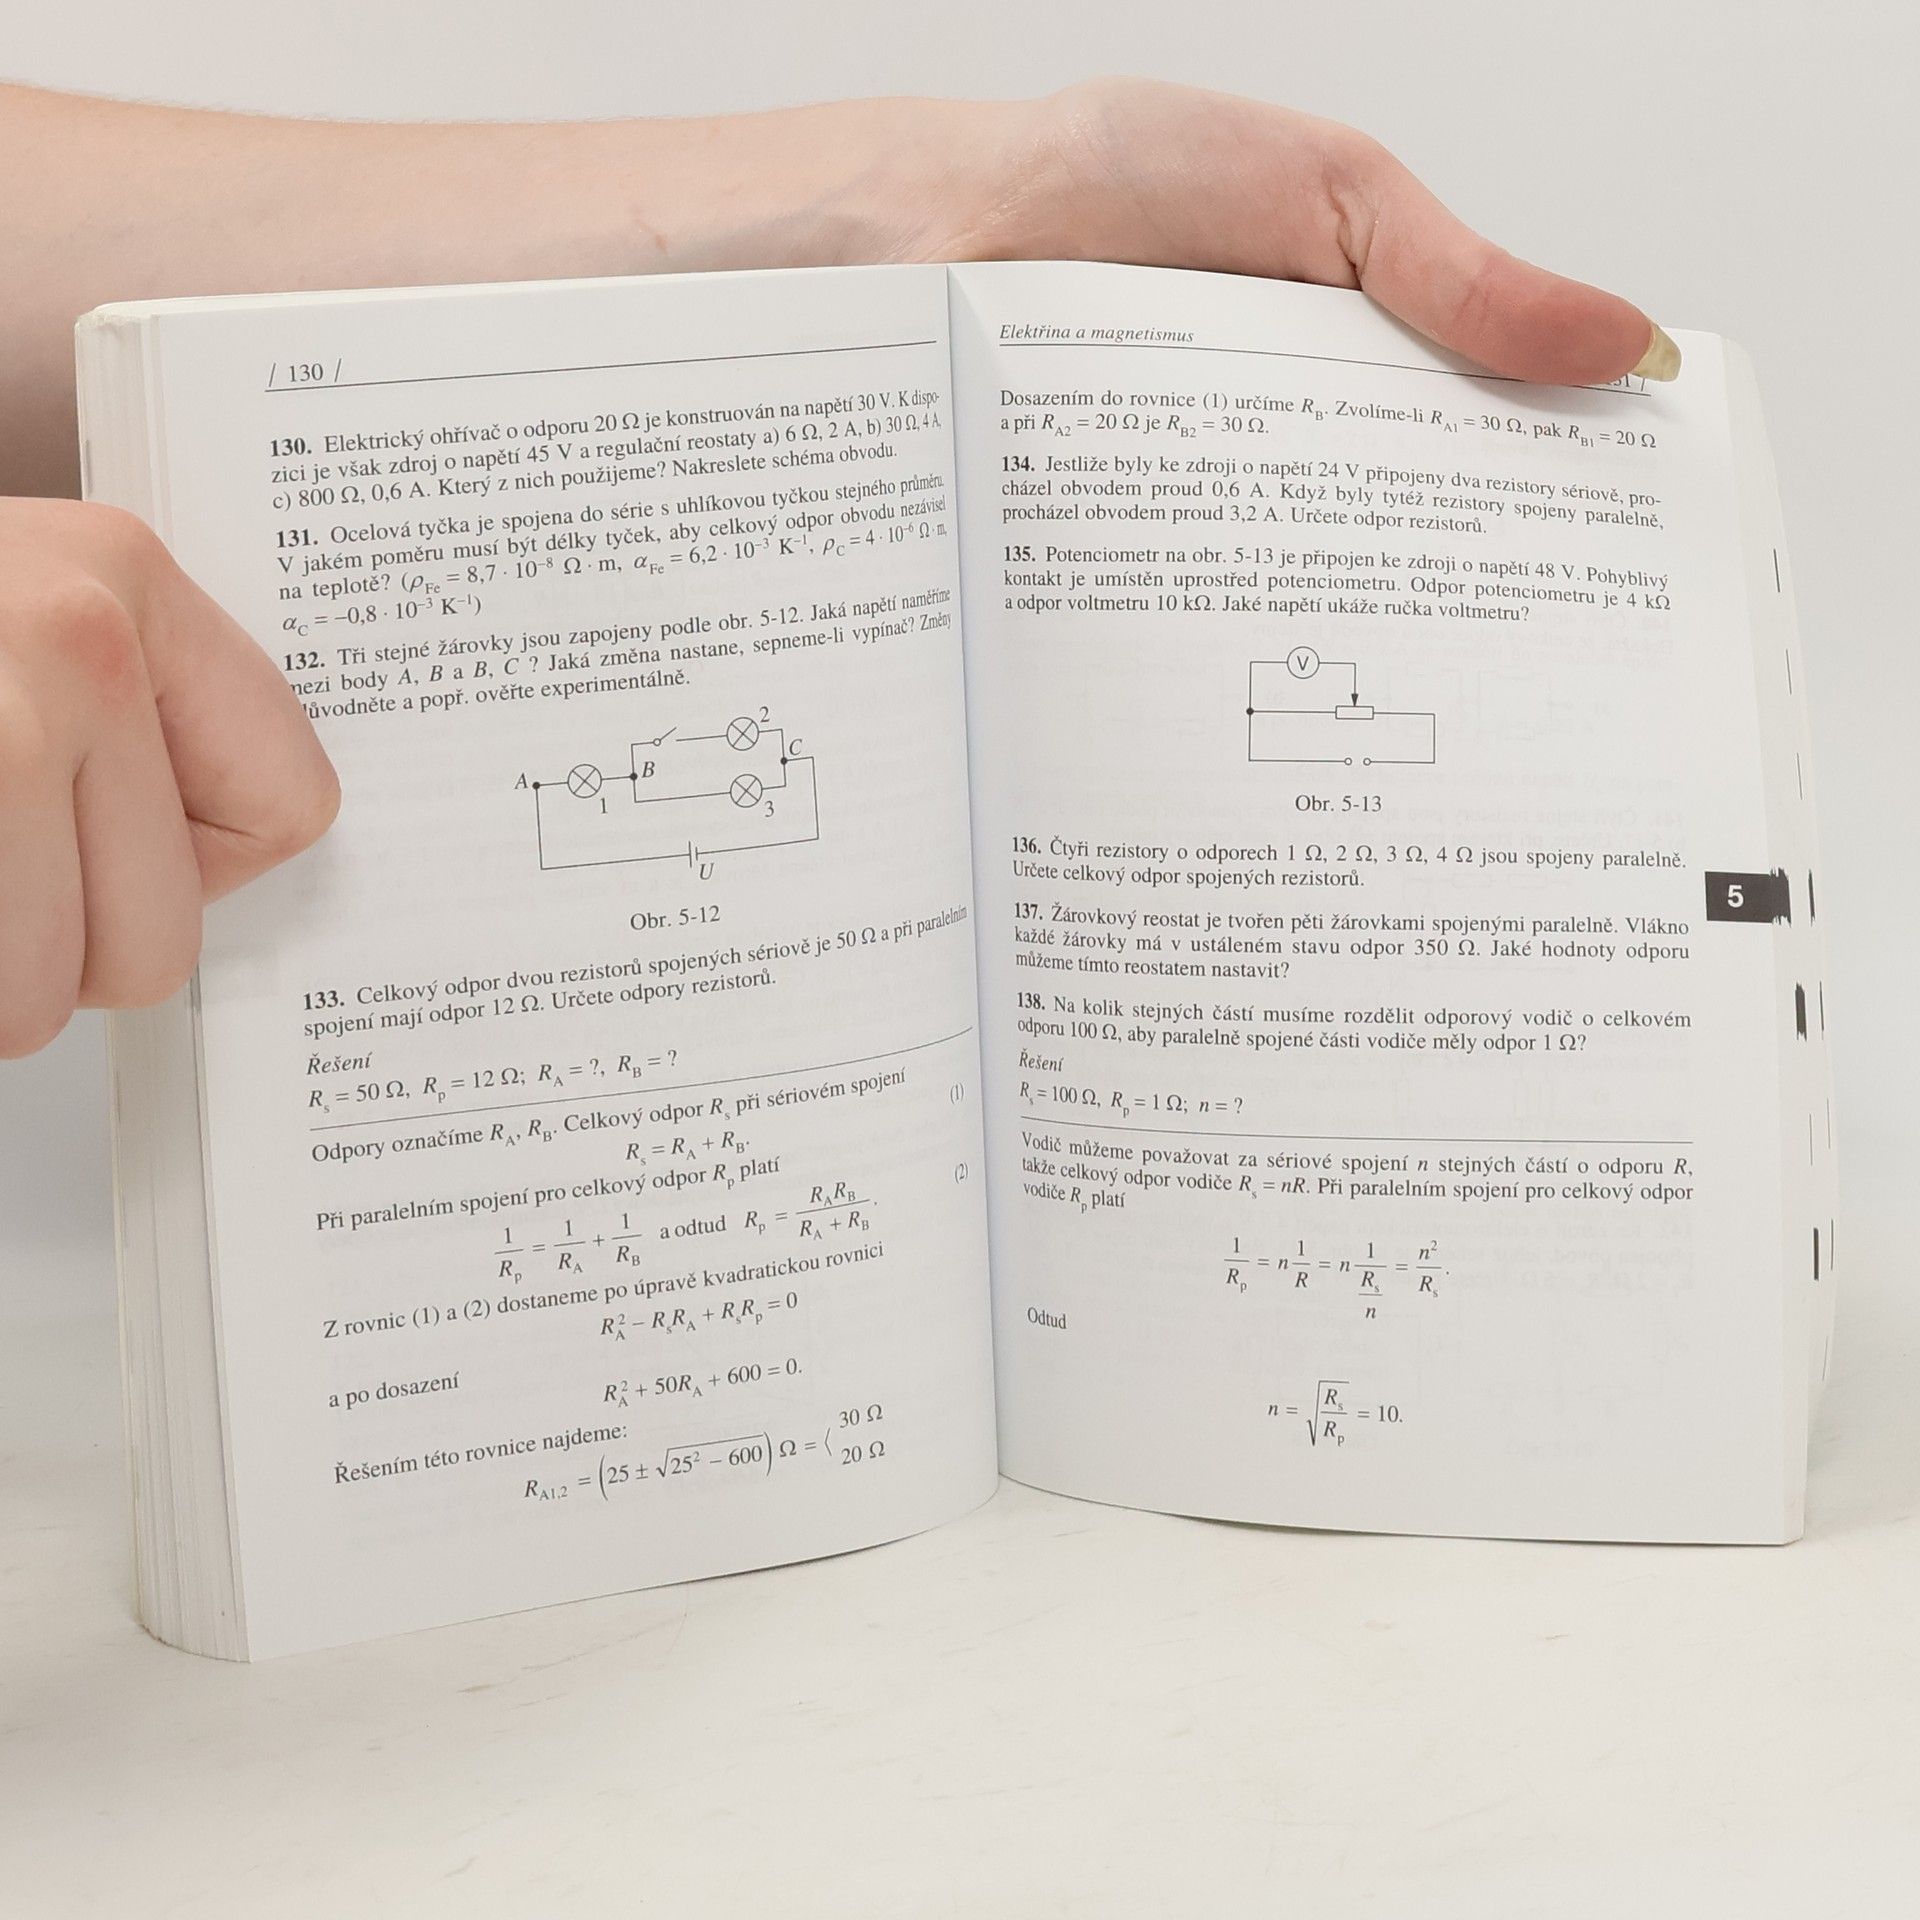 / 130 /
130. Elektrický ohřívač o odporu 20 Ω je konstruován na napětí 30 V. K dispo-
zici je však zdroj o napětí 45 V a regulační reostaty a) 6 Ω, 2 A, b) 30 Ω, 4 A,
c) 800 Ω, 0,6 A. Který z nich použijeme? Nakreslete schéma obvodu.
131. Ocelová tyčka je spojena do série s uhlíkovou tyčkou stejného průměru.
V jakém poměru musí být délky tyček, aby celkový odpor obvodu nezávisel
na teplotě? (ρFe = 8,7 · 10⁻⁸ Ω · m, αFe = 6,2 · 10⁻³ K⁻¹, ρC = 4 · 10⁻⁶ Ω · m,
αC = –0,8 · 10⁻³ K⁻¹)
132. Tři stejné žárovky jsou zapojeny podle obr. 5-12. Jaká napětí naměříme
mezi body A, B a B, C ? Jaká změna nastane, sepneme-li vypínač? Změny
důvodněte a popř. ověřte experimentálně.
A
1
B
2
C
3
U
Obr. 5-12
133. Celkový odpor dvou rezistorů spojených sériově je 50 Ω a při paralelním
spojení mají odpor 12 Ω. Určete odpory rezistorů.
Řešení
Rs = 50 Ω, Rp = 12 Ω; RA = ?, RB = ?
Odpory označíme RA, RB. Celkový odpor Rs při sériovém spojení
Rs = RA + RB. (1)
Při paralelním spojení pro celkový odpor Rp platí
1/Rp = 1/RA + 1/RB a odtud Rp = RARB/(RA + RB). (2)
Z rovnic (1) a (2) dostaneme po úpravě kvadratickou rovnici
RA² – RsRA + RsRp = 0
a po dosazení
RA² + 50RA + 600 = 0.
Řešením této rovnice najdeme:
RA1,2 = (25 ± √(25² – 600)) Ω = ⟨ 30 Ω
20 Ω
Elektřina a magnetismus
Dosazením do rovnice (1) určíme RB. Zvolíme-li RA1 = 30 Ω, pak RB1 = 20 Ω
a při RA2 = 20 Ω je RB2 = 30 Ω.
134. Jestliže byly ke zdroji o napětí 24 V připojeny dva rezistory sériově, pro-
cházel obvodem proud 0,6 A. Když byly tytéž rezistory spojeny paralelně,
procházel obvodem proud 3,2 A. Určete odpor rezistorů.
135. Potenciometr na obr. 5-13 je připojen ke zdroji o napětí 48 V. Pohyblivý
kontakt je umístěn uprostřed potenciometru. Odpor potenciometru je 4 kΩ
a odpor voltmetru 10 kΩ. Jaké napětí ukáže ručka voltmetru?
V
Obr. 5-13
136. Čtyři rezistory o odporech 1 Ω, 2 Ω, 3 Ω, 4 Ω jsou spojeny paralelně.
Určete celkový odpor spojených rezistorů.
137. Žárovkový reostat je tvořen pěti žárovkami spojenými paralelně. Vlákno
každé žárovky má v ustáleném stavu odpor 350 Ω. Jaké hodnoty odporu
můžeme tímto reostatem nastavit?
138. Na kolik stejných částí musíme rozdělit odporový vodič o celkovém
odporu 100 Ω, aby paralelně spojené části vodiče měly odpor 1 Ω?
Řešení
Rs = 100 Ω, Rp = 1 Ω; n = ?
Vodič můžeme považovat za sériové spojení n stejných částí o odporu R,
takže celkový odpor vodiče Rs = nR. Při paralelním spojení pro celkový odpor
vodiče Rp platí
1/Rp = n 1/R = n 1/(Rs/n) = n²/Rs.
Odtud
n = √(Rs/Rp) = 10.
5